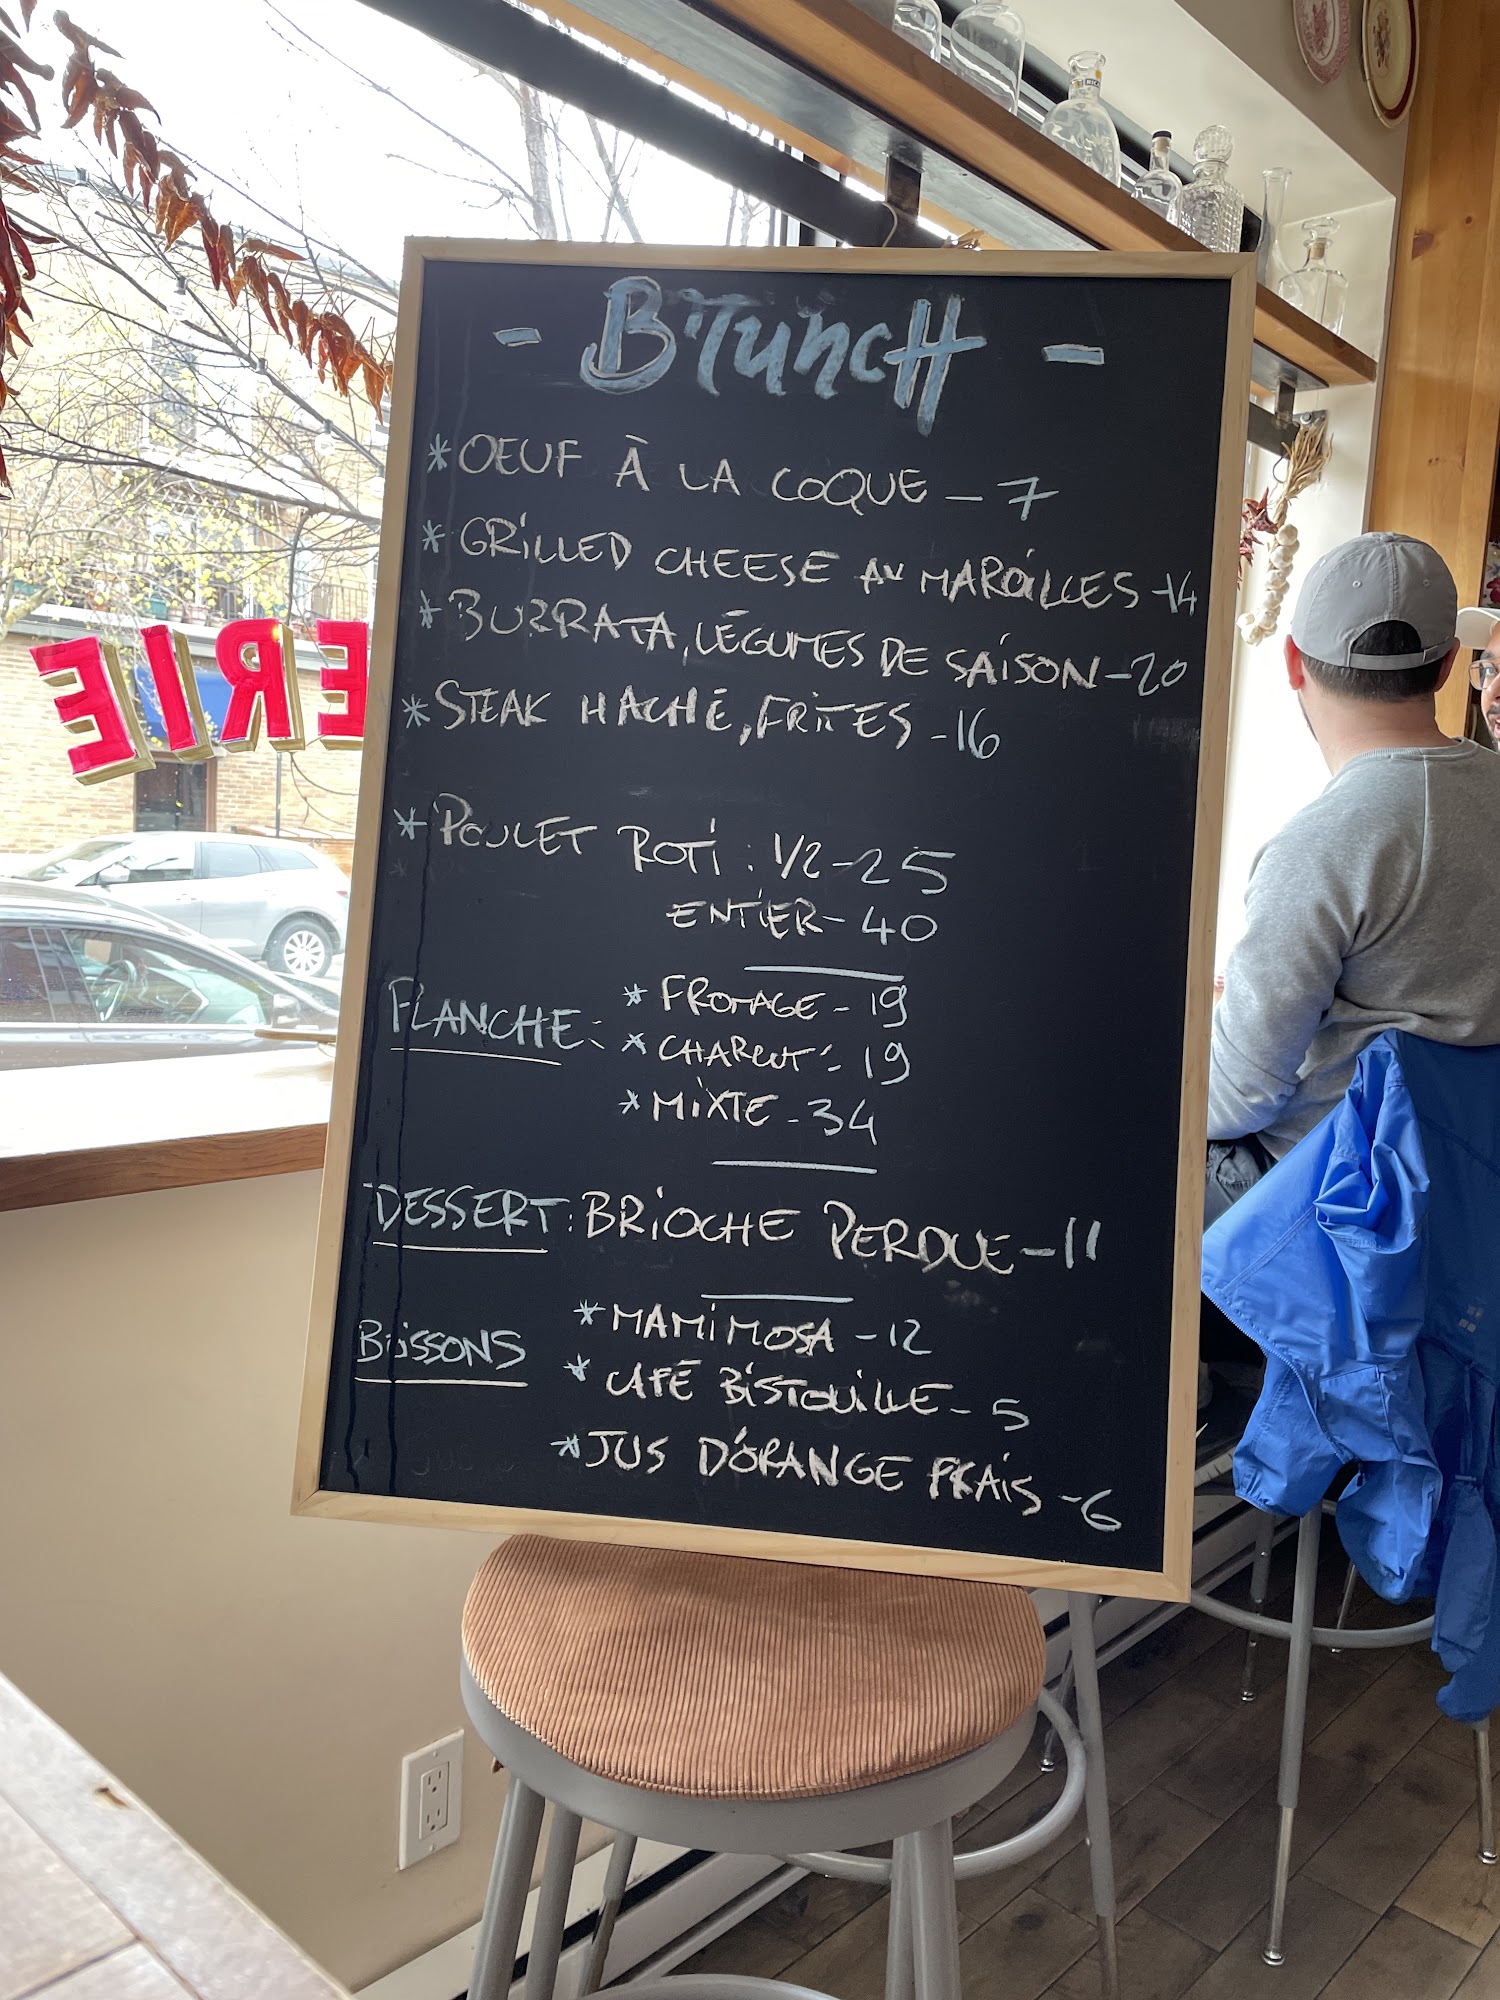 - BruncH -
* OEUF À LA COQUE - 7
* GRILLED CHEESE AU MAROILLES - 14
* BURRATA, LÉGUMES DE SAISON - 20
* STEAK HACHÉ, FRITES - 16
* POULET ROTI : 1/2 - 25
ENTIER - 40
PLANCHE : * FROMAGE - 19
* CHARCUT' - 19
* MIXTE - 34
DESSERT : BRIOCHE PERDUE - 11
BOISSONS * MAMIMOSA - 12
* CAFÉ BISTOUILLE - 5
* JUS D'ORANGE FRAIS - 6
ERIE